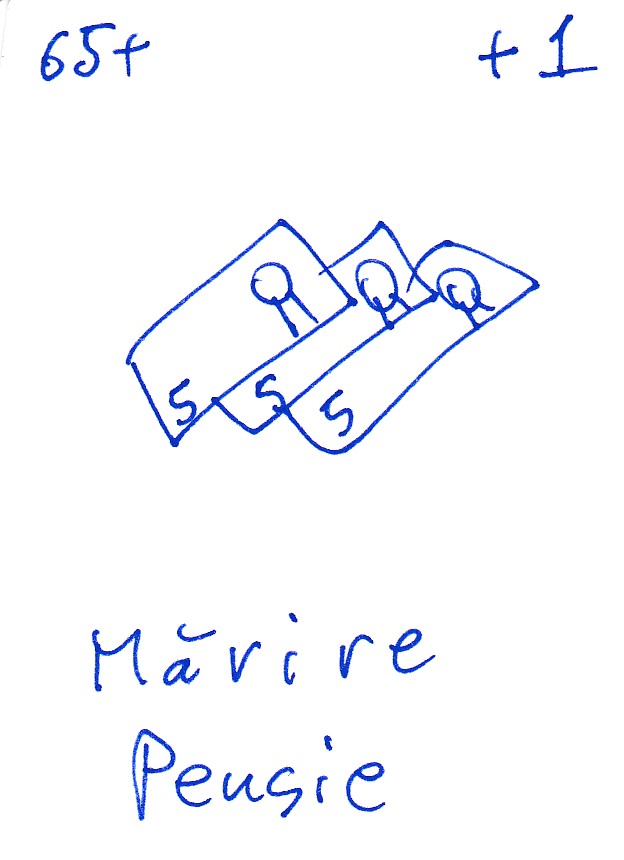 65+ +1
5 5 5
Mărire
Pensie